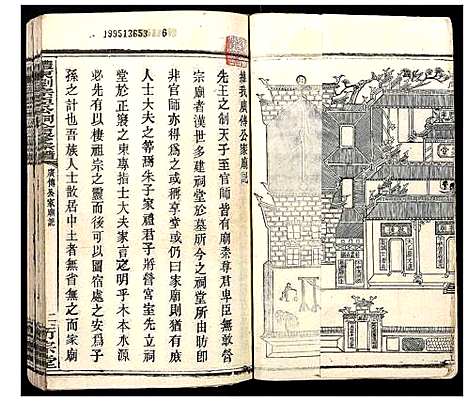 199513653 6
捷我廣傳公家廟記
先王之制天子至官師皆有廟秦尊君卑臣無敢營
宗廟者漢世多建祠堂於墓所今之祠堂所由昉卽
非官師亦得爲之或稱享堂或仍曰家廟則猶有成
人士大夫之等焉朱子家禮君子將營宮室先立祠
堂於正寢之東專指士大夫家言之明乎木本水源
必先有以棲祖宗之靈而後可以圖宿處之安爲子
孫之計也吾族人士散居中土者無省無之而家廟
廣傳公家廟記